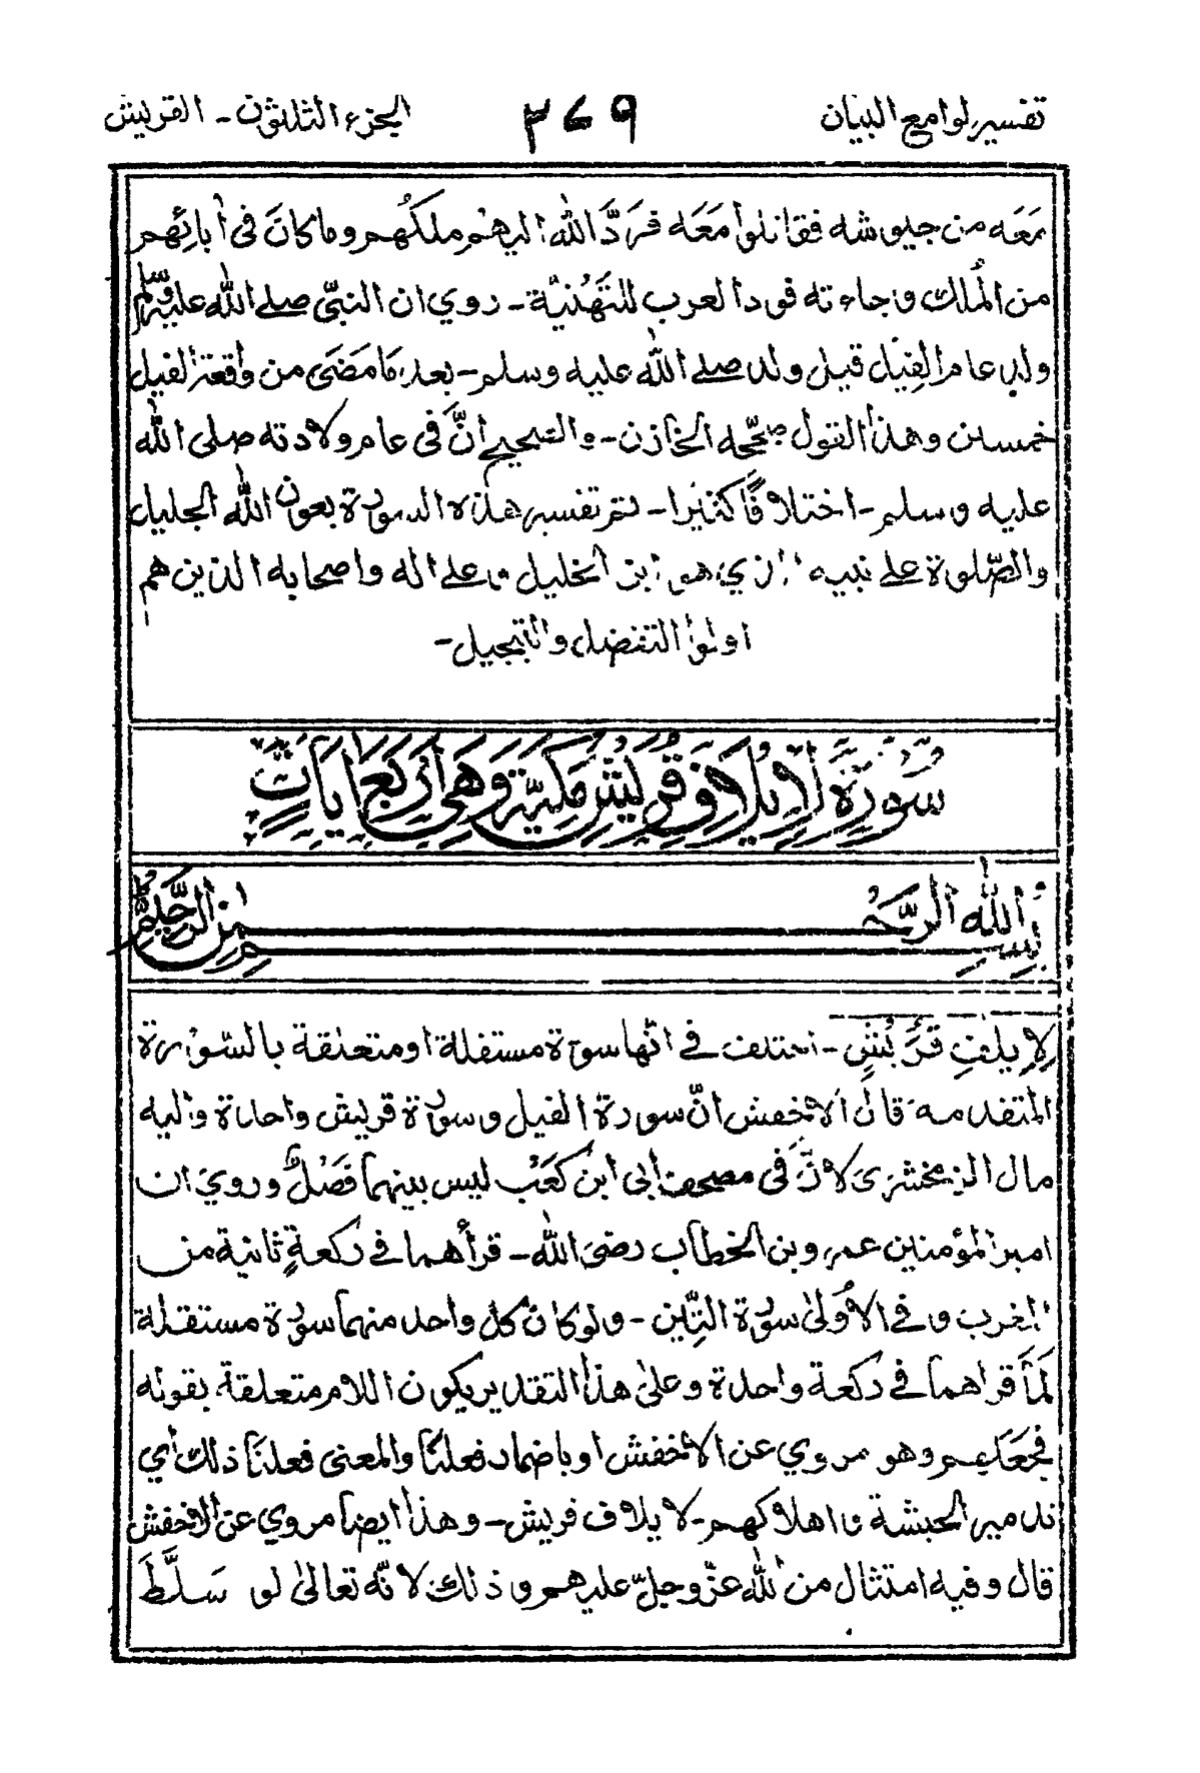 تفسير لوامع البيان ٣٧٩ الجزء الثلثون - القريش
مَعَه من جيوشه فقاتلوا مَعَه فرَدَّ الله اليهم ملكَهُم وما كانَ فى أبائِهم
من المُلك وجاءته قود العرب للتَهْنيَّة - روي ان النبىّ صلى الله عليه وسلم
ولد عام الفِيل قيل ولد صلى الله عليه وسلم - بعد مَا مَضَى من واقعة الفيل
خمسين وهذا القول صحّحه الخازن - والصحيح انَّ فى عام ولادته صلى الله
عليه وسلم - اختلافًا كثيرا - تم تفسير هذه السورة بعون الله الجليل
والصّلوة على نبيه الذي هو ابن الخليل وعلى اله واصحابه الذين هم
اولوا التفضل والتبجيل -
سُوْرَةُ لِاِيْلَافِ قُرَيْشٍ مَكِيَّة وَهِىَ اَرْبَعُ اٰيَاتٍ
بِسْمِ الله الرَّحْمٰنِ الرَّحِيْمِ
لِاِيلٰفِ قُرَيْشٍ - اختلف فى انّها سورة مستقلة او متعلقة بالسّوْرة
المتقدمة قال الاخفش انّ سورة الفيل وسورة قريش واحدة واليه
مال الزمخشرى لانّ فى مصحف أبى ابن كَعَب ليس بينهما فَصْلٌ وروي ان
امير المؤمنين عمر وبن الخطاب رضى الله - قرأهما فى ركعةٍ ثانية من
المغرب و فى الاُولىٰ سورة التِّين - ولو كان كل واحد منهما سورة مستقلة
لَمَا قراهما فى ركعة واحدة وعلىٰ هذا التقدير يكون اللام متعلقة بقوله
فجَعَلهم وهو مروي عن الاخفش او باضمار فعلنَا والمعنى فعلنَا ذلك أي
تدمير الحبشة واهلاكهم - لايلاف قريش - وهذا ايضا مروي عن الاخفش
قال وفيه امتثال من الله عزّ وجلّ عليهم و ذلك لانّه تعالىٰ لو سَلَّطَ